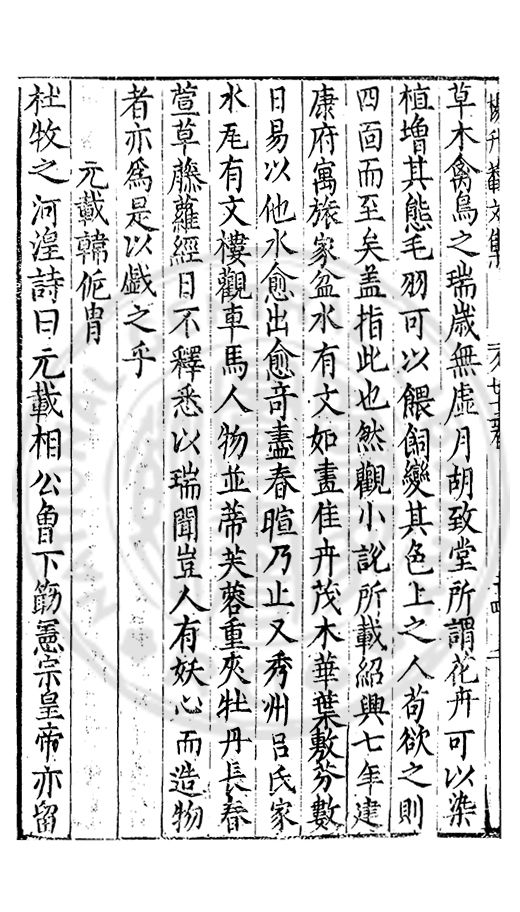 楊升菴文集
草木禽鳥之瑞歲無虛月胡致堂所謂花卉可以染
植增其態毛羽可以餵飼變其色上之人苟欲之則
四面而至矣盖指此也然觀小說所載紹興七年建
康府寓旅家盆水有文如畫佳卉茂木華葉敷芬數
日易以他水愈出愈竒盡春暄乃止又秀州吕氏家
水瓦有文樓觀車馬人物並蒂芙蓉重夾牡丹長春
萱草藤蘿經日不釋悉以瑞聞豈人有妖心而造物
者亦爲是以戲之乎
元載韓侂胄
杜牧之河湟詩曰元載相公魯下筯憲宗皇帝亦留